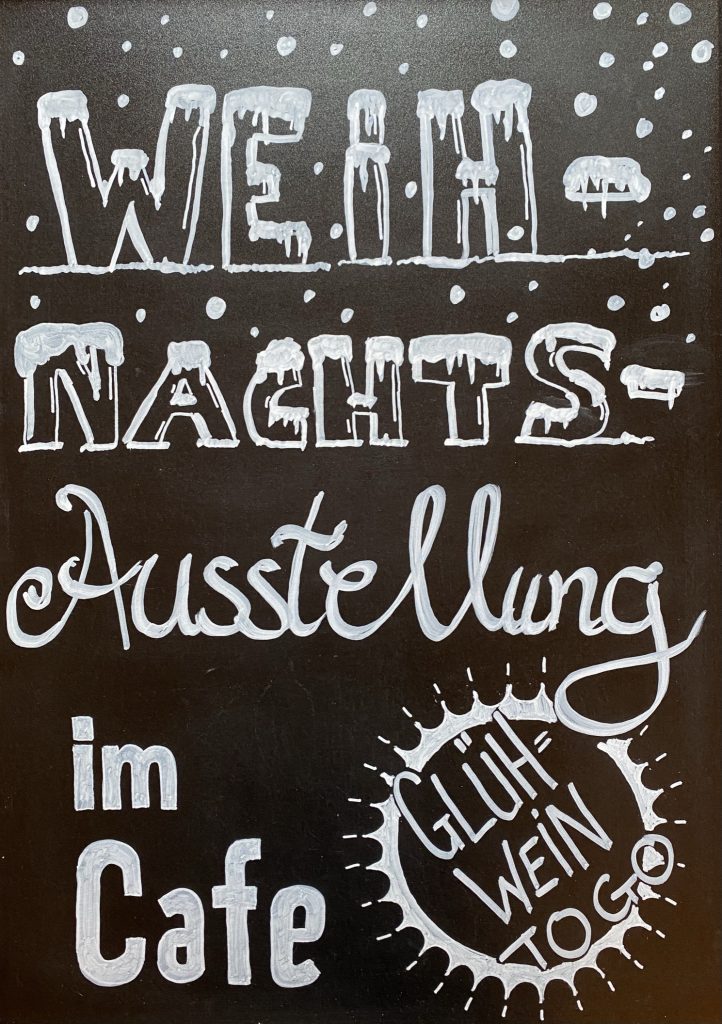 WEIH-
NACHTS-
Ausstellung
im
Cafe
GLÜH=
WEIN
TO GO